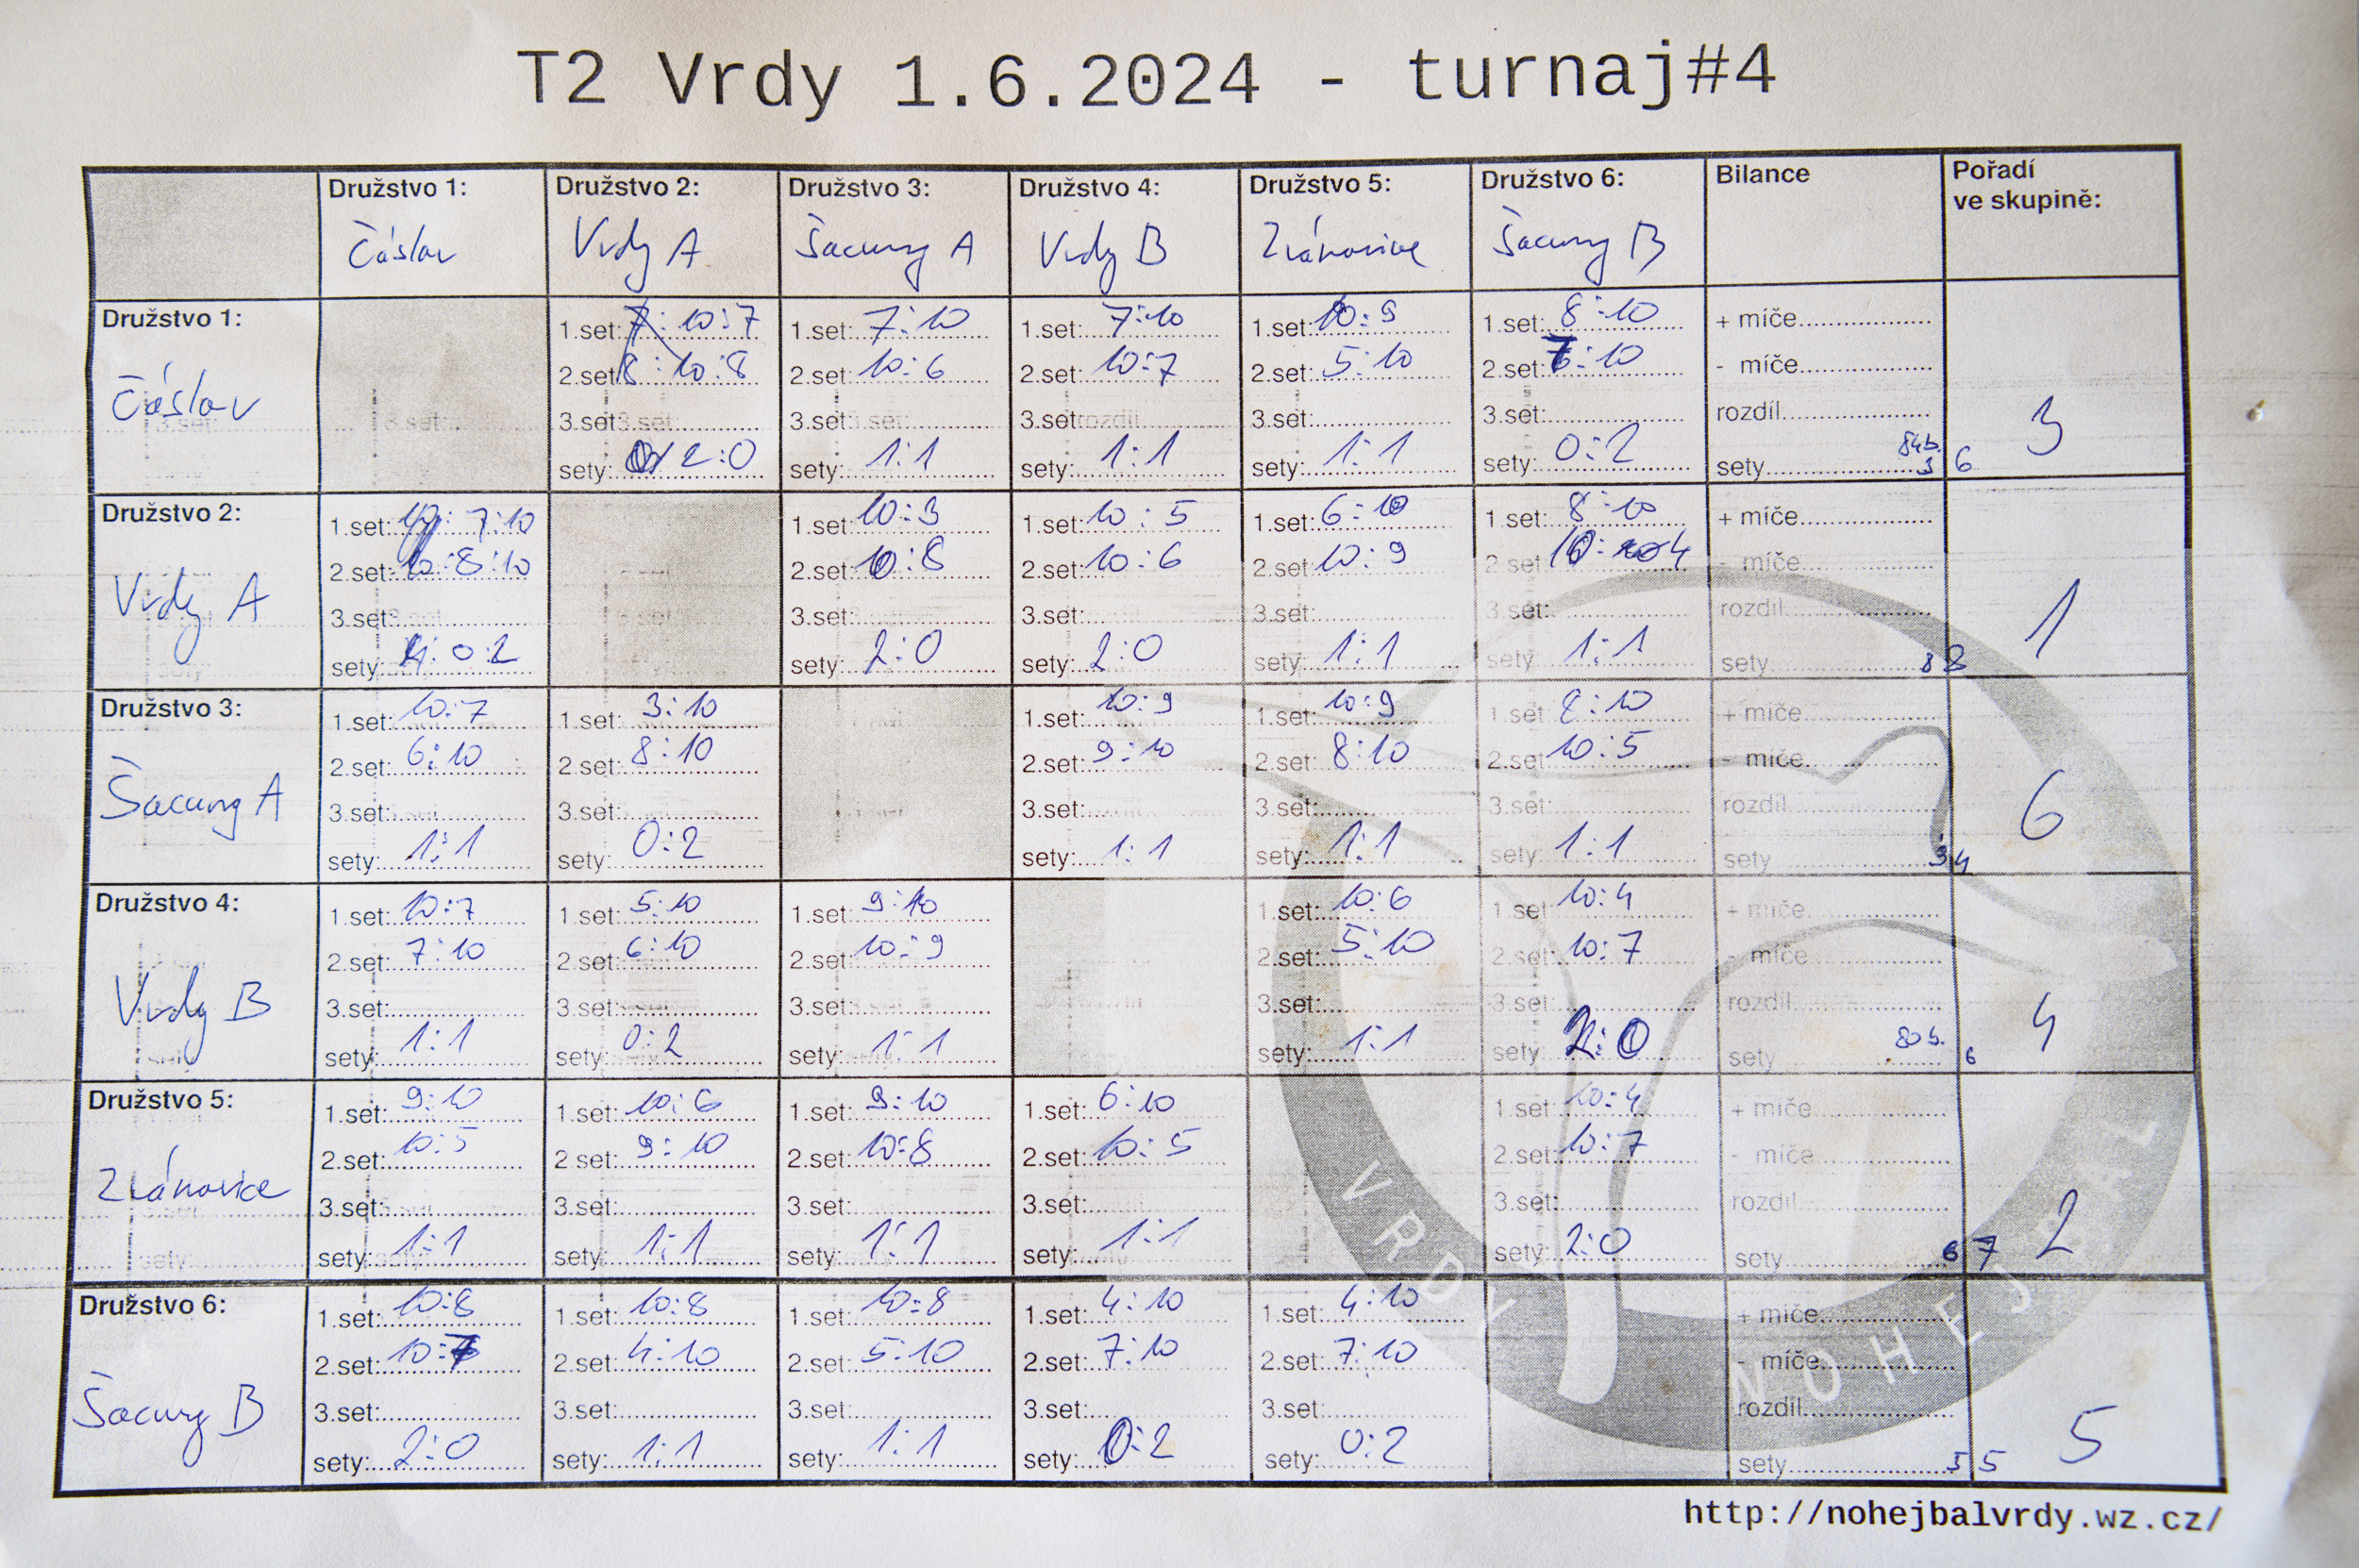 T2 Vrdy 1.6.2024 - turnaj#4
Družstvo 1: Družstvo 2: Družstvo 3: Družstvo 4: Družstvo 5: Družstvo 6: Bilance Pořadí
ve skupině:
Čáslav Vrdy A Šacung A Vrdy B Zránovice Šacung B
Družstvo 1:
Čáslav
1.set: 10:7 1.set: 7:10 1.set: 7:10 1.set: 10:9 1.set: 8:10 + míče
2.set: 10:8 2.set: 10:6 2.set: 10:7 2.set: 5:10 2.set: 7:10 - míče
3.set 3.set 3.set 3.set: 3.set: rozdíl
sety: 2:0 sety: 1:1 sety: 1:1 sety: 1:1 sety: 0:2 sety 84b. 3 6
3
Družstvo 2:
Vrdy A
1.set: 7:10 1.set: 10:3 1.set: 10:5 1.set: 6:10 1.set: 8:10 + míče
2.set: 8:10 2.set: 10:8 2.set: 10:6 2.set: 10:9 2.set 10:4 - míče
3.set 3.set: 3.set: 3.set: 3.set: rozdíl
sety: 0:2 sety: 2:0 sety: 2:0 sety: 1:1 sety 1:1 sety 8
1
Družstvo 3:
Šacung A
1.set: 10:7 1.set: 3:10 1.set: 10:9 1.set: 10:9 1.set 8:10 + míče
2.set: 6:10 2.set: 8:10 2.set: 9:10 2.set: 8:10 2.set 10:5 - míče
3.set: 3.set: 3.set: 3.set: 3.set: rozdíl
sety: 1:1 sety: 0:2 sety: 1:1 sety: 1:1 sety: 1:1 sety 3 4
6
Družstvo 4:
Vrdy B
1.set: 10:7 1.set: 5:10 1.set: 9:10 1.set: 10:6 1.set 10:4 + míče
2.set: 7:10 2.set: 6:10 2.set: 10:9 2.set: 5:10 2.set: 10:7 - míče
3.set: 3.set: 3.set: 3.set: 3.set: rozdíl
sety: 1:1 sety: 0:2 sety: 1:1 sety: 1:1 sety 2:0 sety 80b. 6
4
Družstvo 5:
Zránovice
1.set: 9:10 1.set: 10:6 1.set: 9:10 1.set: 6:10 1.set 10:4 + míče
2.set: 10:5 2.set: 9:10 2.set: 10:8 2.set: 10:5 2.set: 10:7 - míče
3.set: 3.set: 3.set: 3.set: 3.set: rozdíl
sety: 1:1 sety: 1:1 sety: 1:1 sety: 1:1 sety: 2:0 sety 6 7
2
Družstvo 6:
Šacung B
1.set: 10:8 1.set: 10:8 1.set: 10:8 1.set: 4:10 1.set: 4:10 + míče
2.set: 10:7 2.set: 4:10 2.set: 5:10 2.set: 7:10 2.set: 7:10 - míče
3.set: 3.set: 3.set: 3.set: 3.set: rozdíl
sety: 2:0 sety: 1:1 sety: 1:1 sety: 0:2 sety: 0:2 sety 3 5
5
VRDY NOHEJBAL
http://nohejbalvrdy.wz.cz/